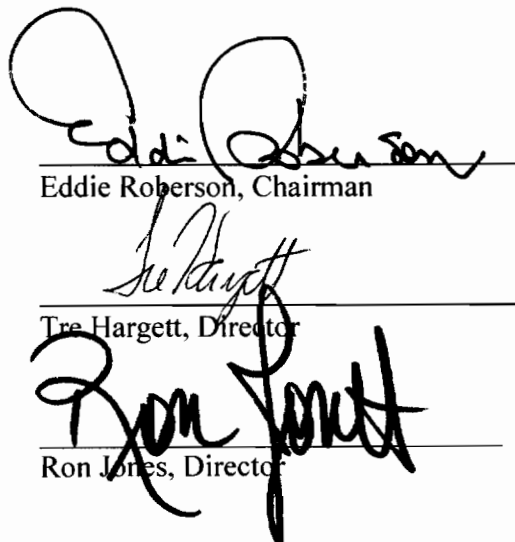 Eddie Roberson
Eddie Roberson, Chairman
Tre Hargett
Tre Hargett, Director
Ron Jones
Ron Jones, Director